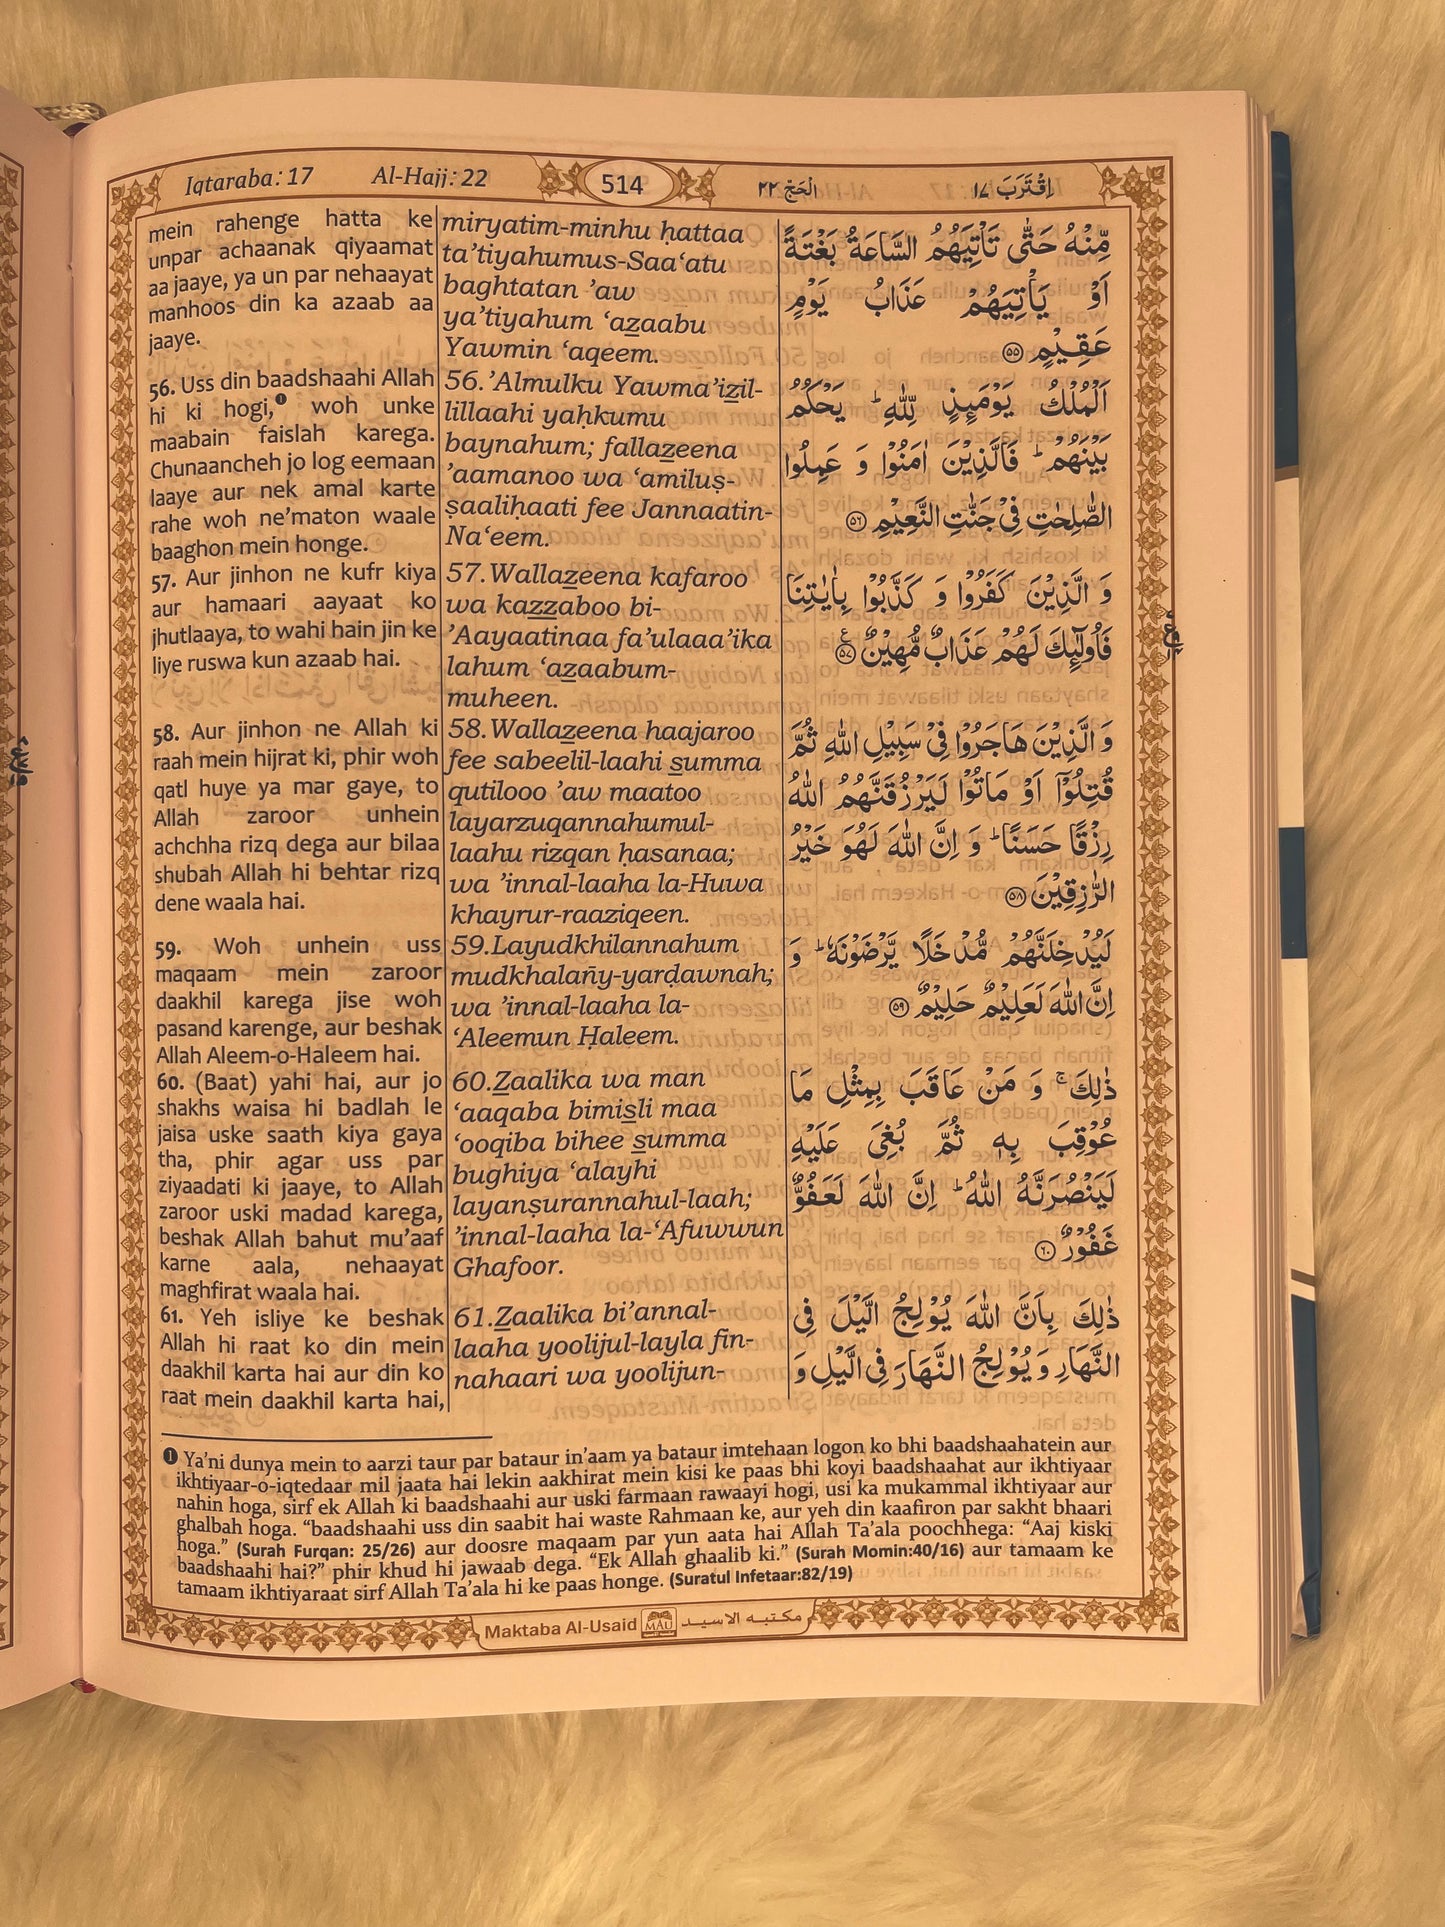 Iqtaraba: 17 Al-Hajj: 22 514 الْحَجّ ٢٢ اِقْتَرَبَ ١٧
mein rahenge hatta ke
unpar achaanak qiyaamat
aa jaaye, ya un par nehaayat
manhoos din ka azaab aa
jaaye.
56. Uss din baadshaahi Allah
hi ki hogi,❶ woh unke
maabain faislah karega.
Chunaancheh jo log eemaan
laaye aur nek amal karte
rahe woh ne’maton waale
baaghon mein honge.
57. Aur jinhon ne kufr kiya
aur hamaari aayaat ko
jhutlaaya, to wahi hain jin ke
liye ruswa kun azaab hai.
58. Aur jinhon ne Allah ki
raah mein hijrat ki, phir woh
qatl huye ya mar gaye, to
Allah zaroor unhein
achchha rizq dega aur bilaa
shubah Allah hi behtar rizq
dene waala hai.
59. Woh unhein uss
maqaam mein zaroor
daakhil karega jise woh
pasand karenge, aur beshak
Allah Aleem-o-Haleem hai.
60. (Baat) yahi hai, aur jo
shakhs waisa hi badlah le
jaisa uske saath kiya gaya
tha, phir agar uss par
ziyaadati ki jaaye, to Allah
zaroor uski madad karega,
beshak Allah bahut mu’aaf
karne aala, nehaayat
maghfirat waala hai.
61. Yeh isliye ke beshak
Allah hi raat ko din mein
daakhil karta hai aur din ko
raat mein daakhil karta hai,
miryatim-minhu ḥattaa
ta’tiyahumus-Saa‘atu
baghtatan ’aw
ya’tiyahum ‘az̲aabu
Yawmin ‘aqeem.
56.’Almulku Yawma’iz̲il-
lillaahi yaḥkumu
baynahum; fallaz̲eena
’aamanoo wa ‘amiluṣ-
ṣaaliḥaati fee Jannaatin-
Na‘eem.
57.Wallaz̲eena kafaroo
wa kaz̲z̲aboo bi-
’Aayaatinaa fa’ulaaa’ika
lahum ‘az̲aabum-
muheen.
58.Wallaz̲eena haajaroo
fee sabeelil-laahi s̲umma
qutilooo ’aw maatoo
layarzuqannahumul-
laahu rizqan ḥasanaa;
wa ’innal-laaha la-Huwa
khayrur-raaziqeen.
59.Layudkhilannahum
mudkhalañy-yarḍawnah;
wa ’innal-laaha la-
‘Aleemun Ḥaleem.
60.Z̲aalika wa man
‘aaqaba bimis̲li maa
‘ooqiba bihee s̲umma
bughiya ‘alayhi
layanṣurannahul-laah;
’innal-laaha la-‘Afuwwun
Ghafoor.
61.Z̲aalika bi’annal-
laaha yoolijul-layla fin-
nahaari wa yoolijun-
مِّنْهُ حَتّٰى تَاْتِيَهُمُ السَّاعَةُ بَغْتَةً
اَوْ يَاْتِيَهُمْ عَذَابُ يَوْمٍ
عَقِيْمٍ ۝٥٥
اَلْمُلْكُ يَوْمَىِٕذٍ لِّلّٰهِ ؕ يَحْكُمُ
بَيْنَهُمْ ؕ فَالَّذِيْنَ اٰمَنُوْا وَ عَمِلُوا
الصّٰلِحٰتِ فِيْ جَنّٰتِ النَّعِيْمِ ۝٥٦
وَ الَّذِيْنَ كَفَرُوْا وَ كَذَّبُوْا بِاٰيٰتِنَا
فَاُولٰٓىِٕكَ لَهُمْ عَذَابٌ مُّهِيْنٌ ۝٥٧ ع
وَ الَّذِيْنَ هَاجَرُوْا فِيْ سَبِيْلِ اللّٰهِ ثُمَّ
قُتِلُوْۤا اَوْ مَاتُوْا لَيَرْزُقَنَّهُمُ اللّٰهُ
رِزْقًا حَسَنًا ؕ وَ اِنَّ اللّٰهَ لَهُوَ خَيْرُ
الرّٰزِقِيْنَ ۝٥٨
لَيُدْخِلَنَّهُمْ مُّدْخَلًا يَّرْضَوْنَهٗ ؕ وَ
اِنَّ اللّٰهَ لَعَلِيْمٌ حَلِيْمٌ ۝٥٩
ذٰلِكَ ۚ وَ مَنْ عَاقَبَ بِمِثْلِ مَا
عُوْقِبَ بِهٖ ثُمَّ بُغِيَ عَلَيْهِ
لَيَنْصُرَنَّهُ اللّٰهُ ؕ اِنَّ اللّٰهَ لَعَفُوٌّ
غَفُوْرٌ ۝٦٠
ذٰلِكَ بِاَنَّ اللّٰهَ يُوْلِجُ الَّيْلَ فِي
النَّهَارِ وَ يُوْلِجُ النَّهَارَ فِي الَّيْلِ وَ
❶ Ya’ni dunya mein to aarzi taur par bataur in’aam ya bataur imtehaan logon ko bhi baadshaahatein aur
ikhtiyaar-o-iqtedaar mil jaata hai lekin aakhirat mein kisi ke paas bhi koyi baadshaahat aur ikhtiyaar
nahin hoga, sirf ek Allah ki baadshaahi aur uski farmaan rawaayi hogi, usi ka mukammal ikhtiyaar aur
ghalbah hoga. “baadshaahi uss din saabit hai waste Rahmaan ke, aur yeh din kaafiron par sakht bhaari
hoga.” (Surah Furqan: 25/26) aur doosre maqaam par yun aata hai Allah Ta’ala poochhega: “Aaj kiski
baadshaahi hai?” phir khud hi jawaab dega. “Ek Allah ghaalib ki.” (Surah Momin:40/16) aur tamaam ke
tamaam ikhtiyaraat sirf Allah Ta’ala hi ke paas honge. (Suratul Infetaar:82/19)
Maktaba Al-Usaid MAU مكتبه الاسيد